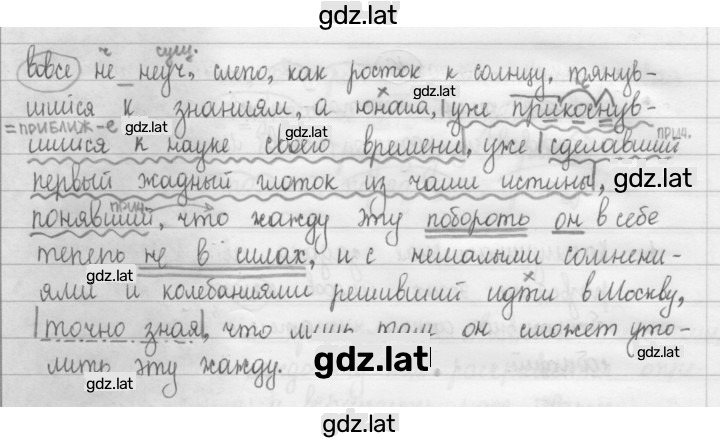 gdz.lat
ч сущ.
вовсе не неуч, слепо, как росток к солнцу, тянув-
шийся к знаниям, а юноша, уже прикоснув-
=ПРИБЛИЖ-Е gdz.lat gdz.lat прич.
шийся к науке своего времени, уже сделавший
первый жадный глоток из чаши истины, gdz.lat
прич.
понявший, что жажду эту побороть он в себе
теперь не в силах, и с немалыми сомнени-
gdz.lat
ями и колебаниями решивший идти в Москву,
точно зная, что лишь там он сможет уто-
gdz.lat gdz.lat
лить эту жажду.
gdz.lat
gdz.lat